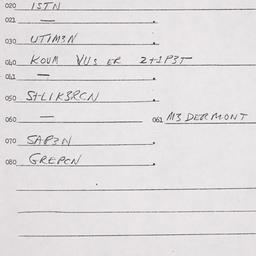 020 ISTN
021 —
030 UTIM3N
040 KOUM VU3 ER
041 —
050
060 — 061 M3 DERMONT
070 SAP3N
080 GREPCN